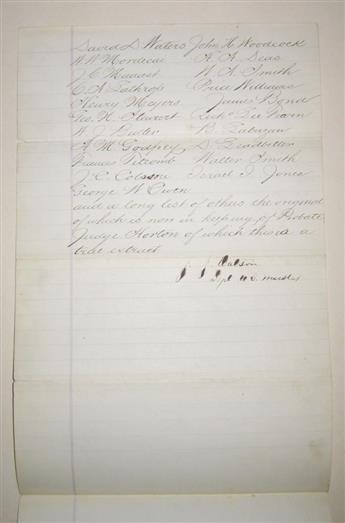 David D Waters John H Woodcock
W W Mordecai A A Deas
J C W. A. Smith
C A Lathrop Price Williams
Henry Meyers James Bond
Geo. N. Stewart Rich'd Dearborn
A. J. Butler B.
A. M. Godfrey S. Leadbetter
Francis Titcomb Walter Smith
J. C. Israel I. Jones
George W Owen
and a long list of others the original
of which is now in keeping of Probate
Judge Horton of which this is a
true extract
Dpt U.S. Marshal